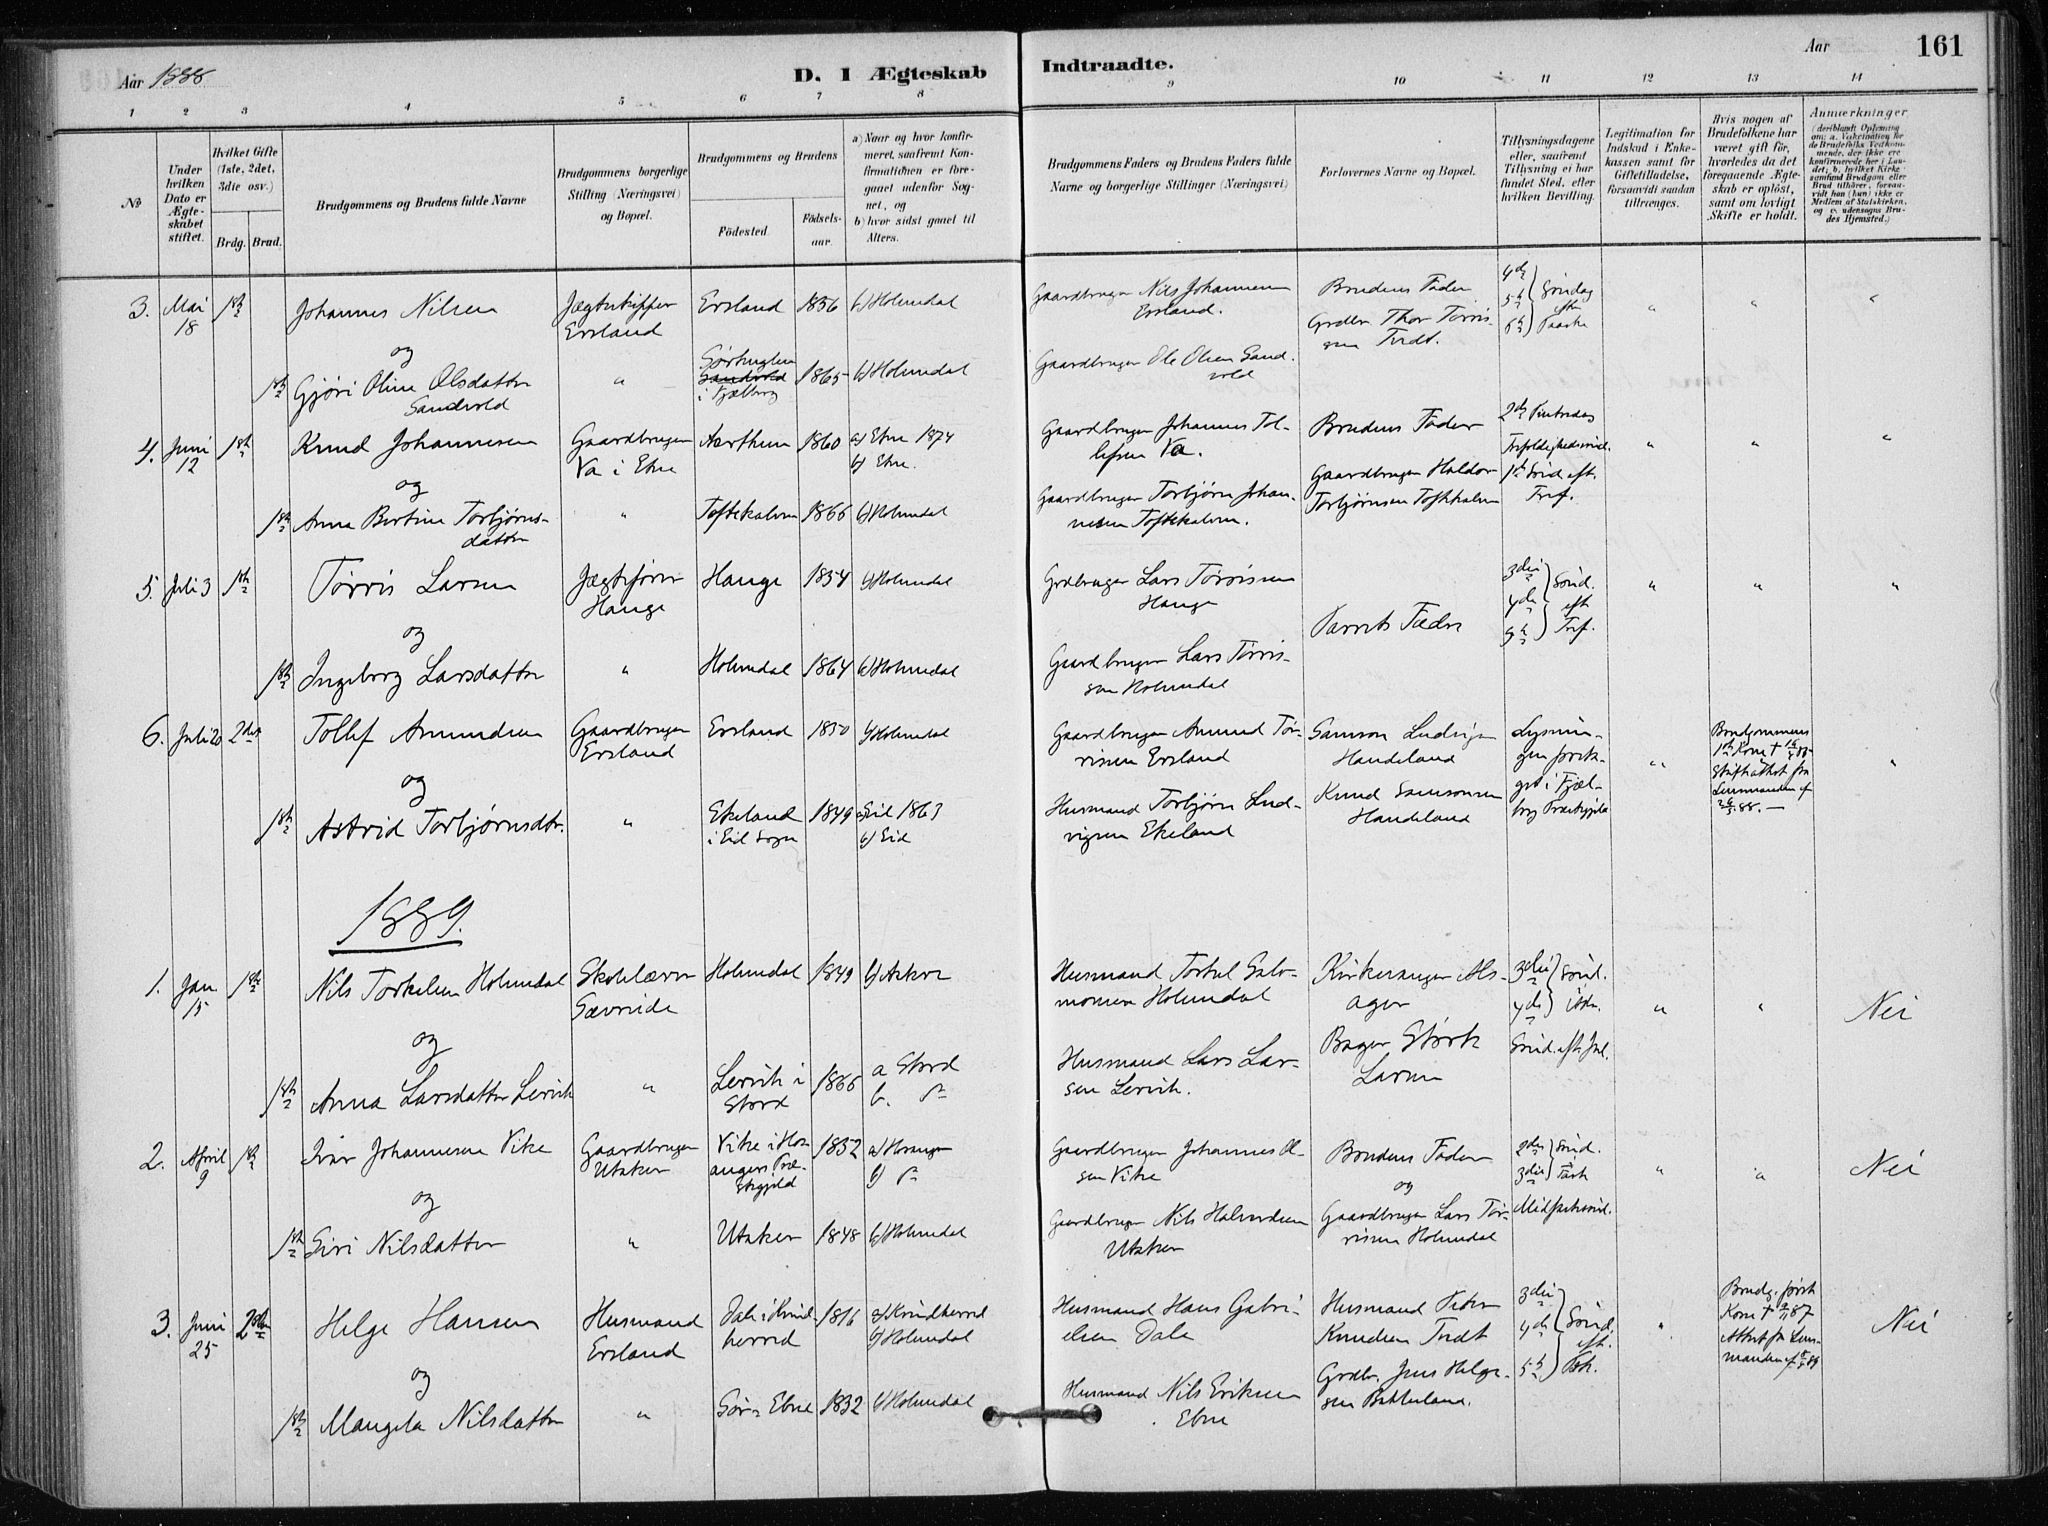 Aar 1888.
D. I Ægteskab
Indtraadte.
Aar
161
1 2 3 4 5 6 7 8 9 10 11 12 13 14
No
Under hvilken Dato er Ægteskabet stiftet.
Hvilket Gifte (1ste, 2det, 3die osv.)
Brdg. Brud.
Brudgommens og Brudens fulde Navne
Brudgommens borgerlige Stilling (Næringsvei) og Bopæl.
Brudgommens og Brudens
Födested
Födsels-aar.
a) Naar og hvor konfirmeret, saafremt Konfirmationen er foregaaet udenfor Sognet, og
b) hvor sidst gaaet til Alters.
Brudgommens Faders og Brudens Faders fulde Navne og borgerlige Stillinger (Næringsvei)
Forlovernes Navne og Bopæl.
Tillysningsdagene eller, saafremt Tillysning ei har fundet Sted, efter hvilken Bevilling.
Legitimation for Indskud i Enkekassen samt for Giftetilladelse, forsaavidt saadan tiltrænges.
Hvis nogen af Brudefolkene har været gift för, hvorledes da det foregaaende Ægteskab er oplöst, samt om lovligt Skifte er holdt.
Anmærkninger
(deriblandt Oplysning om: a. Vakcination for de Brudefolks Vedkommende, der ikke ere konfirmerede her i Landet; b. hvilket Kirkesamfund Brudgom eller Brud tilhörer, forsaavidt han (hun) ikke er Medlem af Statskirken, og c. udensogns Brudes Hjemsted.)
3. Mai 18 1ste Johannes Nilsen Jægteskipper Ersland Ersland 1856 b) Holmedal Gaardbruger Nils Johannesen Ersland. Brudens Fader Grdbr. Thor Tørrissen Tvedt. 4de 5te 6te Søndag eft. Paaske " " "
og
1ste Gjøri Oline Olsdatter Sandvold " i Fjælberg 1865 b) Holmedal Gaardbruger Ole Olsen Sandvold
4. Juni 12 1ste Knud Johannesen Gaardbruger Va i Etne Aartheim 1860 a) Etne 1874 b) Etne. Gaardbruger Johannes Tollefsen Va. Brudens Fader 2den Pintsedag Trefoldighedssønd. " " "
og
1ste Anna Bertine Torbjørnsdatter " Toftekalven 1866 b) Holmedal Gaardbruger Torbjørn Johannesen Toftekalven. Gaardbruger Haldor Torbjørnsen Toftekalven 1ste Sønd. eft. Tref.
5. Juli 3 1ste Tørris Larsen Jægtefører Hauge Hauge 1854 b) Holmedal Grdbruger Lars Tørrisen Hauge Parrets Fædre 3die 4de 5te Sønd. eft. Tref. " " "
og
1ste Ingeborg Larsdatter " Holmedal 1864 b) Holmedal Gaardbruger Lars Tørrissen Holmedal
6. Juli 20 2det Tollef Amundsen Gaardbruger Ersland Ersland 1850 b) Holmedal Gaardbruger Amund Tørrisen Ersland Samson Ludvigsen Handeland Lysningen foretaget i Fjælberg Præstegjeld " Brudgommens 1ste Kone † Skifteattest fra Lensmanden af 88. — "
og
1ste Astrid Torbjørnsdtr. " Ekeland i Eid Sogn 1849 a) Eid 1863 b) Eid Husmand Torbjørn Ludvigsen Ekeland Knud Samsonsen Handeland
1889.
1. Jan. 15 1ste Nils Torkelsen Holmedal Skolelærer Sævreide Holmedal 1849 b) Askøe Husmand Torkel Salomonsen Holmedal Kirkesanger Alsager 3die 4de Sønd. i Adv. " " Nei
og
1ste Anna Larsdatter Lervik " Lervik i Stord 1866 a Stord b. do Husmand Lars Larsen Lervik. Bager Størk Larsen Sønd. eft. Jul.
2. April 9 1ste Ivar Johannesen Vike Gaardbruger Utaker Vike i Hosangers Præstegjeld 1832 a) Hosanger b) do Gaardbruger Johannes Olsen Vike Brudens Fader 2den 3die Sønd. i Faste " " Nei
og
1ste Siri Nilsdatter " Utaker 1848 b) Holmedal Gaardbruger Nils Halvorsen Utaker og Gaardbruger Lars Tørrisen Holmedal Midfastesønd.
3. Juni 25 2den Helge Hansen Husmand Ersland Dale i Kvindherred 1816 a) Kvindherred b) Holmedal Husmand Hans Gabrielsen Dale Husmand Peter Knudsen Tvedt 3die 4de 5te Sønd. eft. Psk. " Brudg. første Kone † 87 Attest fra Lensmanden af 89 Nei
og
1ste Mangela Nilsdatter " Sør-Ebne 1832 b) Holmedal Husmand Nils Eriksen Ebne Grdbr. Jens Helgesen Bitterland.